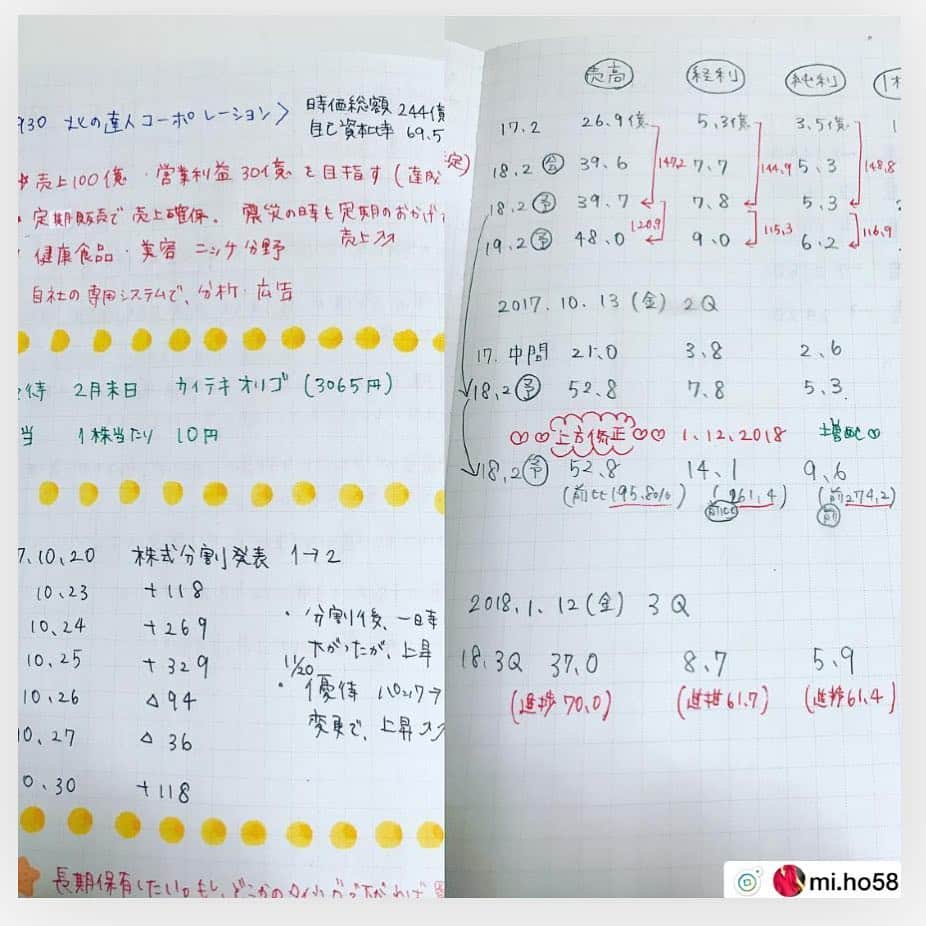 930 北の達人コーポレーション〉
時価総額 244億
自己資本比率 69.5
売上100億・営業利益30億を目指す(達成
定)
定期販売で売上確保。震災の時も定期のおかげ
売上↗↗
健康食品・美容 ニッチ分野
自社の専用システムで、分析・広告
待 2月末日 カイテキオリゴ (3065円)
当 1株当たり 10円
7.10.20 株式分割発表 1→2
10.23 +118
10.24 +269
10.25 +329
10.26 △94
10.27 △36
0.30 +118
・分割後、一時
下がったが、上昇
11/20
・優待
変更で、上昇↗↗
長期保有したい。もし、どこかのタイミングで下がれば
売高 経利 純利 1株
17.2 26.9億 5.3億 3.5億 1
147.2 144.9 148.8
18.2会 39.6 7.7 5.3
18.2予 39.7 7.8 5.3
120.9 115.3 116.9
19.2予 48.0 9.0 6.2
2017.10.13(金) 2Q
17.中間 21.0 3.8 2.6
18.2予 52.8 7.8 5.3
♡♡上方修正♡♡ 1.12.2018 増配♡
18.2予 52.8 14.1 9.6
(前比195.8%) (261.4) (前274.2)
前比 前
2018.1.12(金) 3Q
18.3Q 37.0 8.7 5.9
(進捗70.0) (進捗61.7) (進捗61.4)
mi.ho58